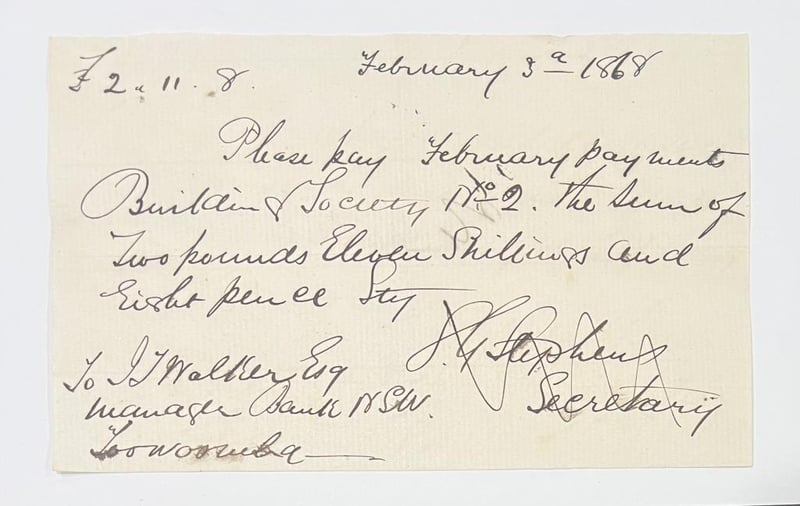 £2 " 11 . 8.
February 3d 1868
Please pay February payments
Building Society No 2. the Sum of
Two pounds Eleven Shillings and
Eight pence Stg
J. G Stephens
Secretary
To J T Walker Esq
manager Bank NSW.
Toowoomba